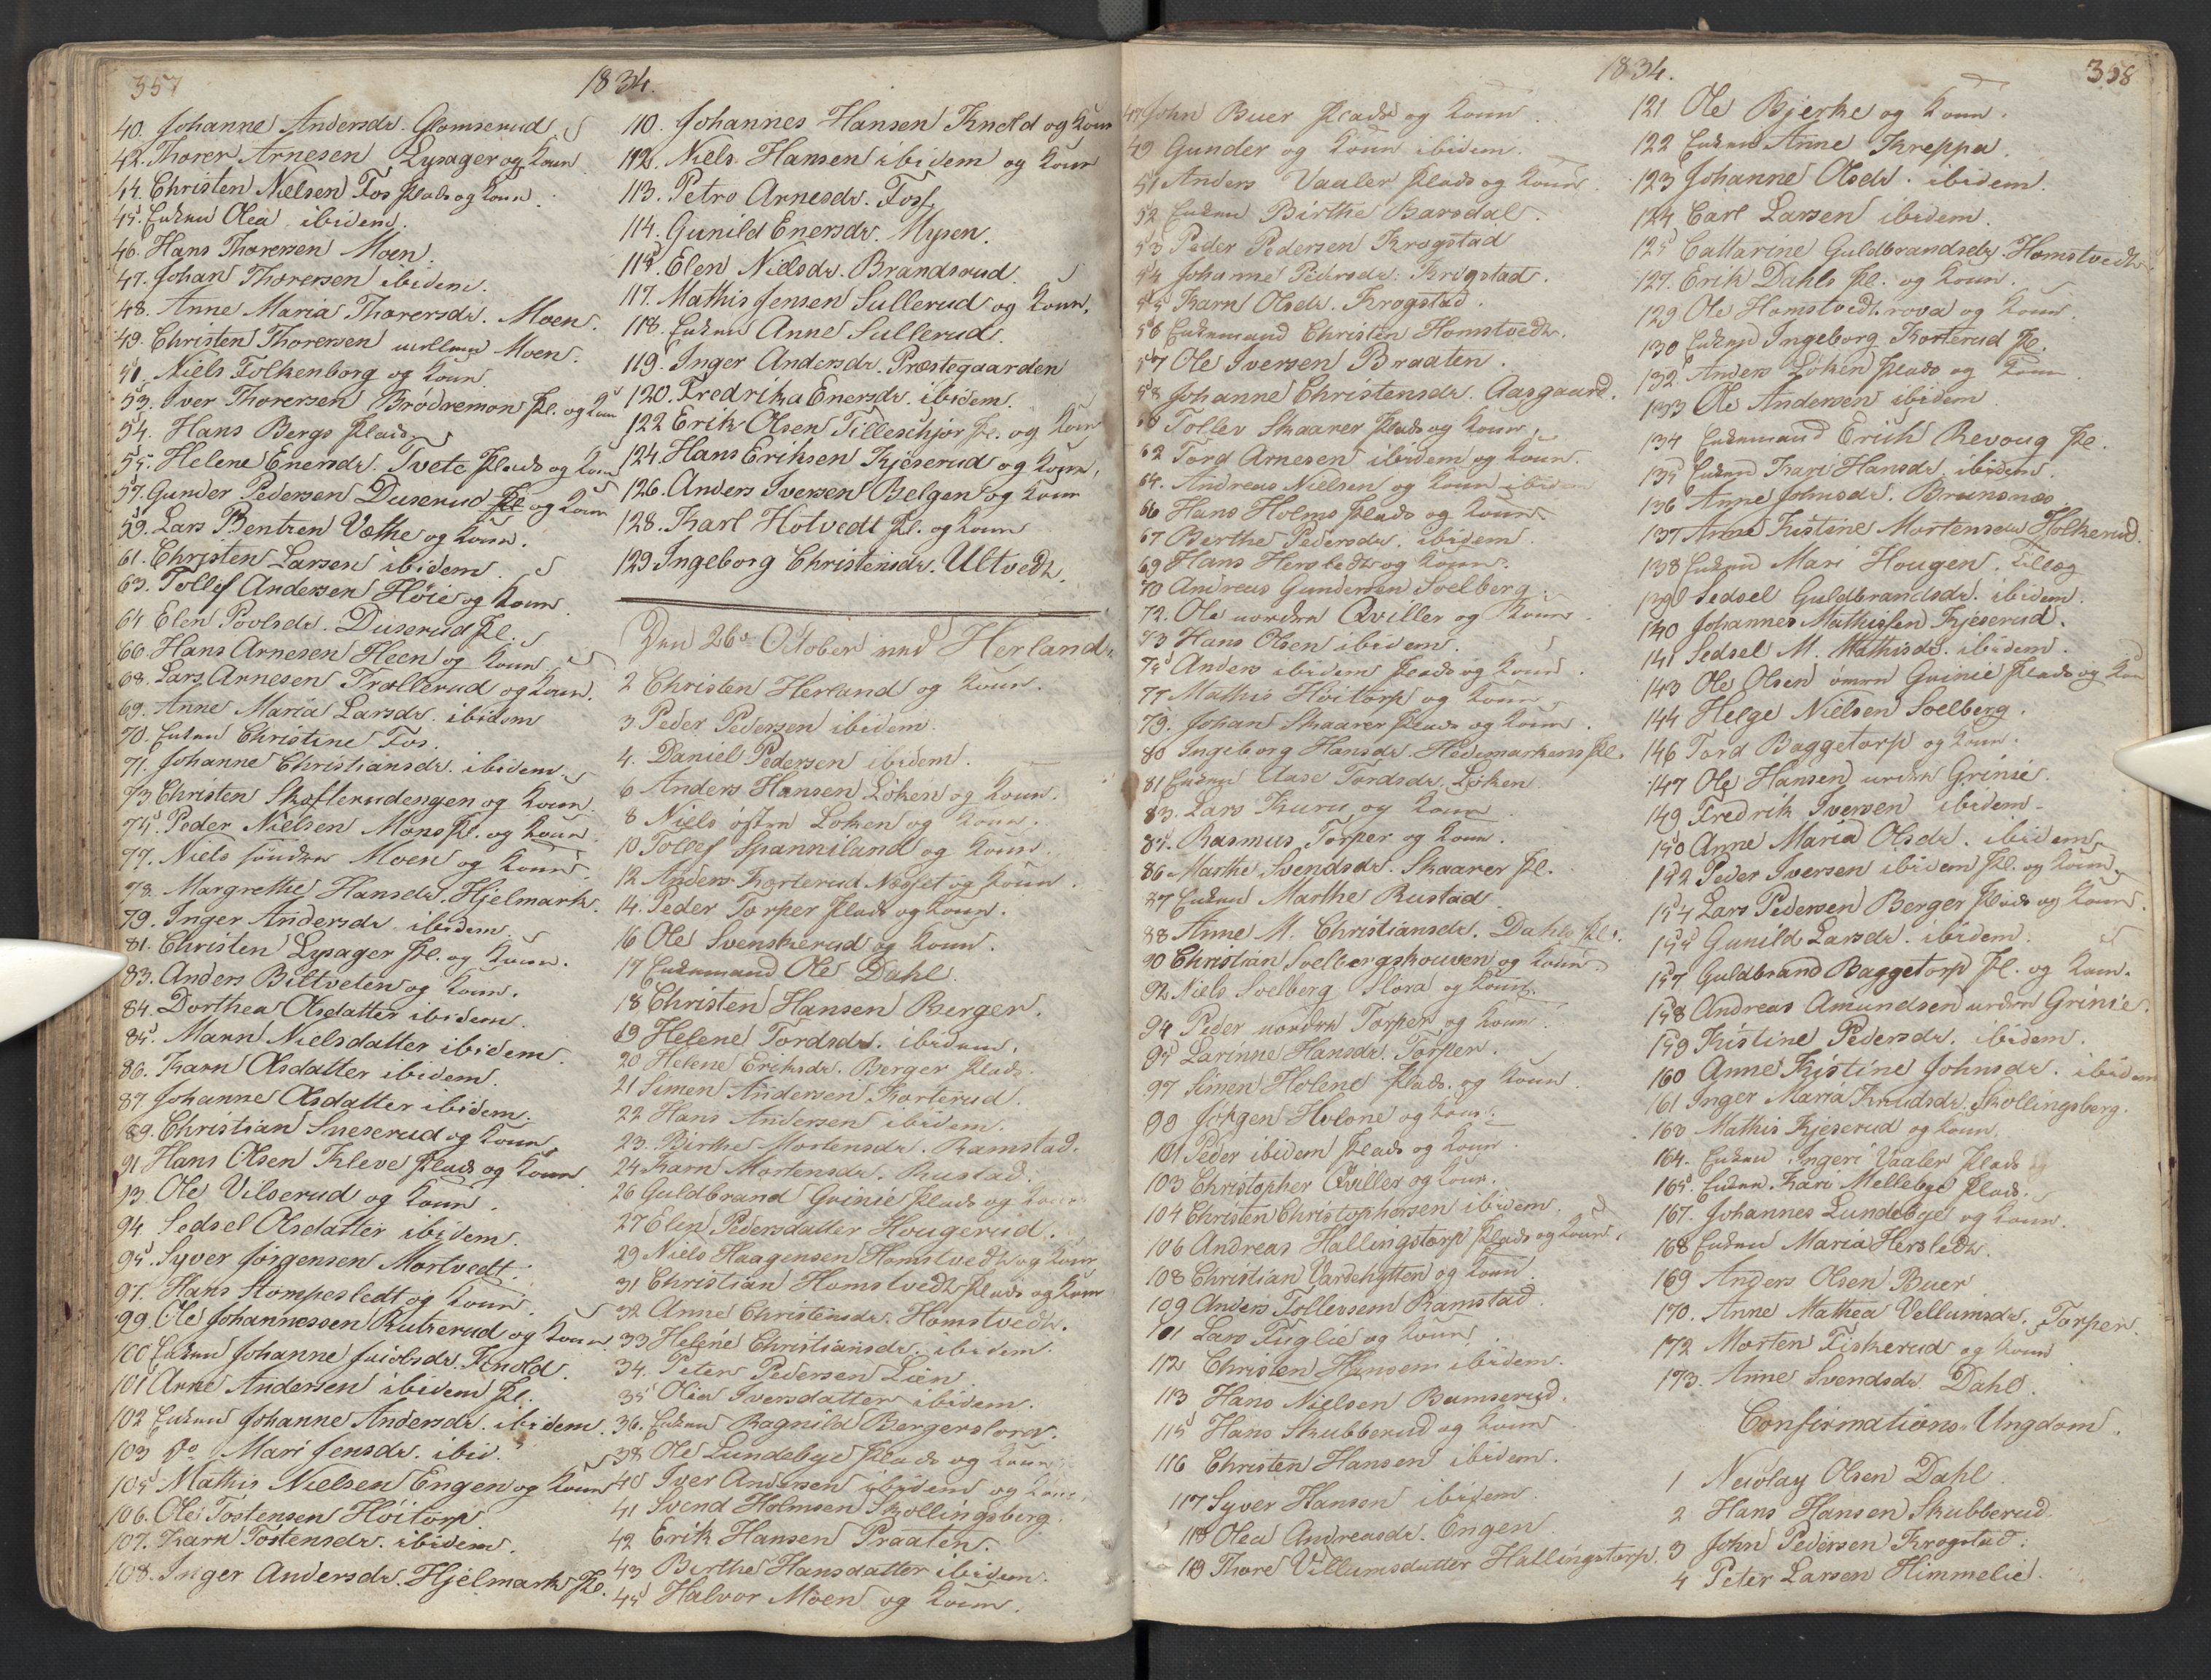 357
1834.
40. Johanne Andersdr. Glomserud
42. Thorer Arnesen Lysager og Kone
44. Christen Nielsen Fos Plads og Kone.
45. Enken Olea ibidem.
46. Hans Thorersen Moen.
47. Johan Thorersen ibidem.
48. Anne Maria Thorersdr. Moen.
49. Christen Thorersen mellem Moen.
51. Niels Folkenborg og Kone
53. Iver Thorersen Brödremon Pl. og Kone
54. Hans Bergs Plads
55. Helene Enersdr. Tvete Plads og Kone
57. Gunder Pedersen Duserud Pl. og Kone
59. Lars Bentzen Væthe og Kone.
61. Christen Larsen ibidem.
63. Tollef Andersen Höie og Kone.
64 Elen Povlsdr. Duserud Pl.
66. Hans Arnesen Heen og Kone
68. Lars Arnesen Trollerud og Kone.
69. Anne Maria Larsdr. ibidem
70. Enken Christine Fos.
71. Johanne Christiansdr. ibidem
73 Christen Skofterudengen og Kone
75. Peder Nielsen Mons Pl. og Kone
77. Niels søndre Moen og Kone.
78. Margrethe Hansdr. Hjelmark.
79. Inger Andersdr. ibidem.
81. Christen Lysager Pl. og Kone.
83. Anders Biltveten og Kone.
84. Dorthea Olsdatter ibidem.
85. Maren Nielsdatter ibidem.
86. Karn Olsdatter ibidem.
87 Johanne Olsdatter ibidem.
89. Christian Sneserud og Kone
91 Hans Olsen Kleve Plads og Kone
93. Ole Vilserud og Kone.
94. Sedsel Olsdatter ibidem.
95. Syver Jørgensen Mortvedt.
97. Hans Stompesledt og Kone.
99. Ole Johannessen Rutzerud og Kone
100 Enken Johanne Jacobsdr. Knold.
101 Arne Andersen ibidem Pl.
102 Enken Johanne Andersdr. ibidem.
103 Do. Mari Jensdr. ibid.
105 Mathis Nielsen Engen og Kone
106. Ole Tostensen Höitorp.
107. Karn Tostensdr. ibidem.
108. Inger Andersdr. Hjelmark Pl.
110. Johannes Hansen Knold og Kone
112. Niels Hansen ibidem og Kone
113. Petro Arnesdr. Foss
114. Gunild Enersdr. Mysen.
115. Elen Nielsdr. Brandsrud.
117. Mathis Jensen Sullerud og Kone.
118. Enken Anne Sullerud.
119. Inger Andersdr. Præstegaarden
120. Fredrika Enersdr. ibidem.
122 Erik Olsen Tilleschjør Pl. og Kone
124. Hans Eriksen Kjeserud og Kone.
126. Anders Iversen Belgen og Kone
128. Karl Hotvedt Pl. og Kone
129 Ingeborg Christensdr. Ultvedt.
Den 26de October ved Herland.
2 Christen Herland og Kone.
3 Peder Pedersen ibidem.
4. Daniel Pedersen ibidem.
6 Anders Hansen Löken og Kone.
8 Niels östre Loken og Kone.
10 Tollef Spanniland og Kone.
12 Anders Korterud Næsset og Kone.
14. Peder Torper Plads og Kone.
16 Ole Svenskerud og Kone.
17 Enkemand Ole Dahl.
18 Christen Hansen Berger.
19 Helene Tordsdr. ibidem.
20 Helene Eriksdr. Berger Plads.
21 Simen Andersen Korterud.
22 Hans Andersen ibidem.
23. Birthe Mortensdr. Ramstad.
24 Karn Mortensdr. Rustad.
26 Guldbrand Grinie Plads og Kone
27 Elen Pedersdatter Hougerud.
29 Niels Haagensen Homstvedt og Kone
31 Christian Homstvedt Plads og Kone
32 Anne Christensdr. Homstvedt.
33 Helene Christiansdr. ibidem.
34. Peter Pedersen Lien
35 Olia Iversdatter ibidem.
36. Enken Ragnild Bergerslora.
38 Ole Lundebye Plads og Kone
40 Iver Andersen ibidem og Kone
41 Svend Holmsen Skollingsberg.
42 Erik Hansen Praaten.
43 Birthe Hansdatter ibidem.
45 Halvor Moen og Kone.
1834.
358
47 John Buer Plads og Kone.
49 Gunder og Kone ibidem.
51 Anders Vaaler Plads og Kone.
52 Enken Birthe Barsdal.
53 Peder Pedersen Krogstad
54 Johanne Pedersdr. Krogstad.
55 Karn Olsdr. Krogstad.
56 Enkemand Christen Homstvedt.
57 Ole Iversen Braaten.
58 Johanne Christensdr. Aasgaard.
60 Tollev Skaarer Plads og Kone.
62 Tord Arnesen ibidem og Kone.
64. Andreas Nielsen og Kone ibidem
66 Hans Holms Plads og Kone
67 Berthe Pedersdr. ibidem.
69 Hans Hersledt og Kone.
70 Andreas Gundersen Soelberg.
72. Ole nordre Qviller og Kone
73 Hans Olsen ibidem.
75 Anders ibidem Plads og Kone.
77 Mathis Höitorp og Kone
79. Johan Skaarer Plads og Kone.
80 Ingeborg Hansdr. Hedemarkens Pl.
81 Enken Aase Tordsdr. Löken.
83. Lars Kure og Kone
85. Rasmus Torper og Kone.
86 Marthe Svendsdr. Skaarer Pl.
87 Enken Marthe Rustad
88 Anne M. Christiansdr. Dahls Pl.
90 Christian Soelbergskouven og Kone
92 Niels Soelberg Slora og Kone.
94 Peder nordre Torper og Kone.
95 Larinne Hansdr. Torper.
97 Simen Holene Plads og Kone.
99 Jørgen Holone og Kone.
101 Peder ibidem Plads og Kone.
103 Christopher Qviller og Kone.
104 Christen Christophersen ibidem.
106 Andreas Hallingstorp Plads og Kone.
108 Christian Vardehytten og Kone
109 Anders Tollevsem Ramstad.
101 Lars Fuglie og Kone
112 Christen Hansen ibidem.
113 Hans Nielsen Bamserud.
115 Hans Skubberud og Kone
116 Christen Hansen ibidem.
117 Syver Hansen ibidem.
118 Olea Andreasdr. Engen
119 Thore Villumsdatter Hallingstorp.
121 Ole Bjerke og Kone.
122 Enken Anne Kreppa.
123 Johanne Olsdr. ibidem.
124 Carl Larsen ibidem.
125 Cattarine Guldbrandsdr. Homstvedt.
127. Erik Dahls Pl. og Kone.
129 Ole Homstvedtrova og Kone.
130 Enken Ingeborg Korterud Pl.
132 Anders Löken Plads og Kone
133 Ole Andersen ibidem
134 Enkemand Erich Revoug Pl.
135 Enken Kari Hansdr. ibidem.
136 Anne Johnsdr. Brunsnæs
137 Anne Kistine Mortensdr. Holkerud.
138 Enken Mari Hougen. Tillæg
139 Sedsel Guldbrandsdr. ibidem.
140 Johannes Mathissen Kjeserud.
141 Sedsel M. Mathisdr. ibidem.
143 Ole Olsen Grinie Plads og Kone
144 Helge Nielsen Soelberg.
146 Tord Baggetorp og Kone.
147 Ole Hansen nedre Grinie.
149 Fredrik Iversen ibidem.
150 Anne Maria Olsdr. ibidem
152 Peder Iversen ibidem Pl. og Kone
154 Lars Pedersen Berger Plads og Kone.
155 Gunild Larsdr. ibidem.
157 Guldbrand Baggetorp Pl. og Kone.
158 Andreas Amundsen nedre Grinie.
159 Kistine Pedersdr. ibidem.
160 Anne Kistine Johnsdr. ibidem
161 Inger Maria Knudsdr. Skollingsberg.
163 Mathis Kjeserud og Kone.
164. Enken Ingeri Vaaler Plads
165. Enken Kari Mellebye Plads.
167. Johannes Lundebye og Kone.
168 Enken Maria Hersledt.
169 Anders Olsen Buer
170. Anne Mathea Vellumsdr. Torper.
172 Morten Fiskerud og Kone
173. Anne Svendsdr. Dahl.
Confirmations-Ungdom.
1 Neiolay Olsen Dahl.
2 Hans Hansen Skubberud.
3 John Pedersen Krogstad.
4 Peter Larsen Himmelie.